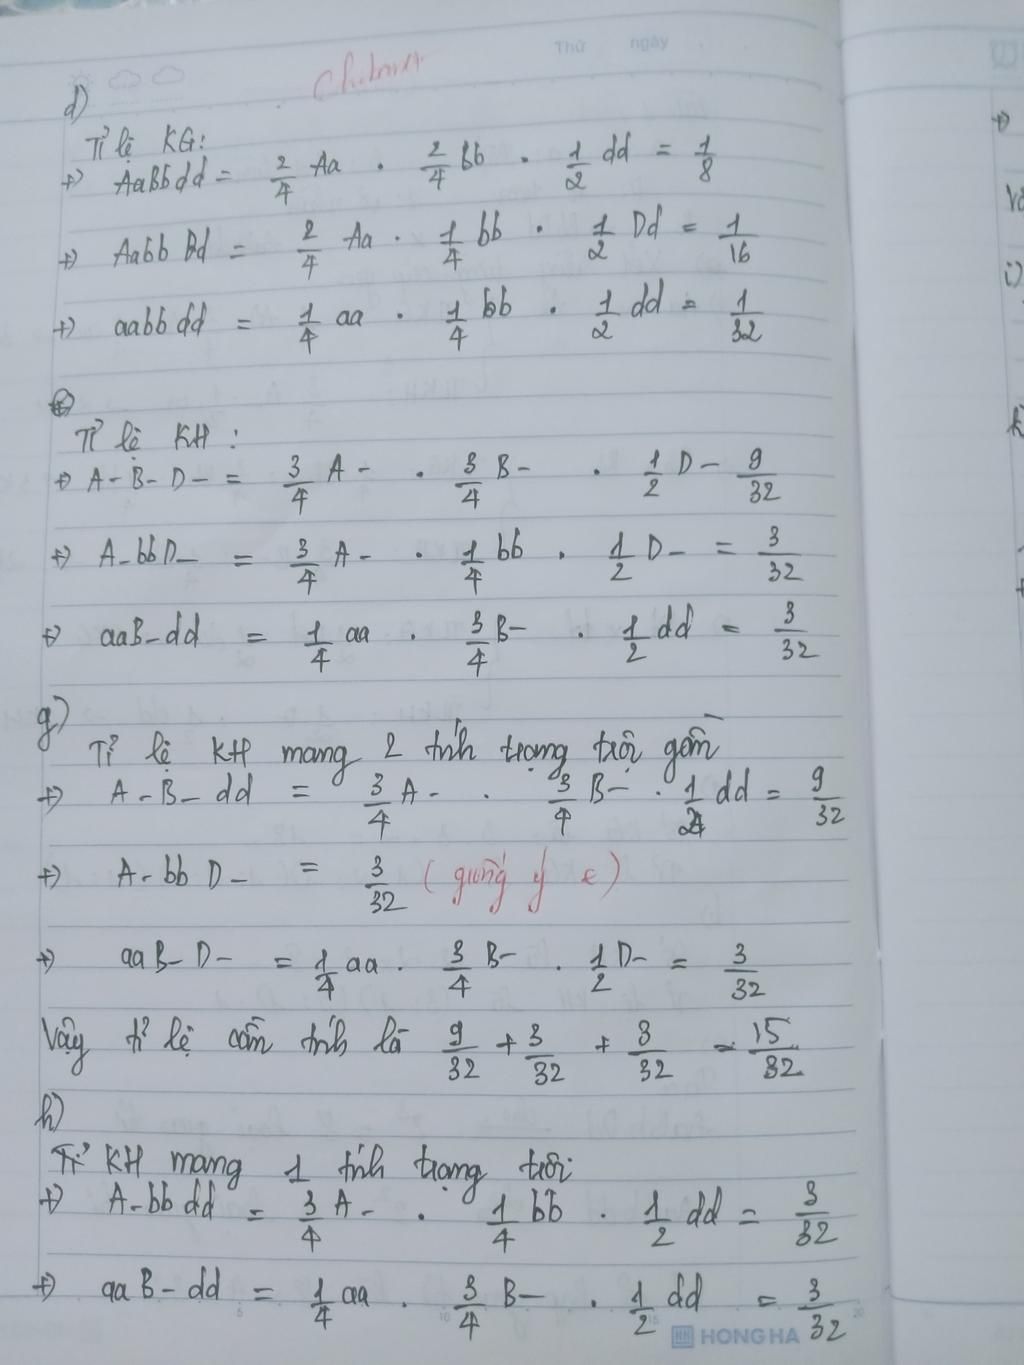 Thứ ngày
d)
Tỉ lệ KG:
+) AaBbdd = 2/4 Aa . 2/4 Bb . 1/2 dd = 1/8
+) Aabb Dd = 2/4 Aa . 1/4 bb . 1/2 Dd = 1/16
+) aabb dd = 1/4 aa . 1/4 bb . 1/2 dd = 1/32
e)
Tỉ lệ KH :
+) A-B-D- = 3/4 A- . 3/4 B- . 1/2 D- 9/32
+) A-bbD- = 3/4 A- . 1/4 bb . 1/2 D- = 3/32
+) aaB-dd = 1/4 aa . 3/4 B- . 1/2 dd = 3/32
g)
Tỉ lệ KH mang 2 tính trạng trội gồm
+) A-B-dd = 3/4 A- . 3/4 B- . 1/2 dd = 9/32
+) A-bb D- = 3/32 (giống ý e)
+) aaB-D- = 1/4 aa . 3/4 B- . 1/2 D- = 3/32
Vậy tỉ lệ cần tính là 9/32 + 3/32 + 3/32 = 15/32
h)
Tỉ KH mang 1 tính trạng trội
+) A-bb dd = 3/4 A- . 1/4 bb . 1/2 dd = 3/32
+) aaB-dd = 1/4 aa . 3/4 B- . 1/2 dd = 3/32
HONG HA